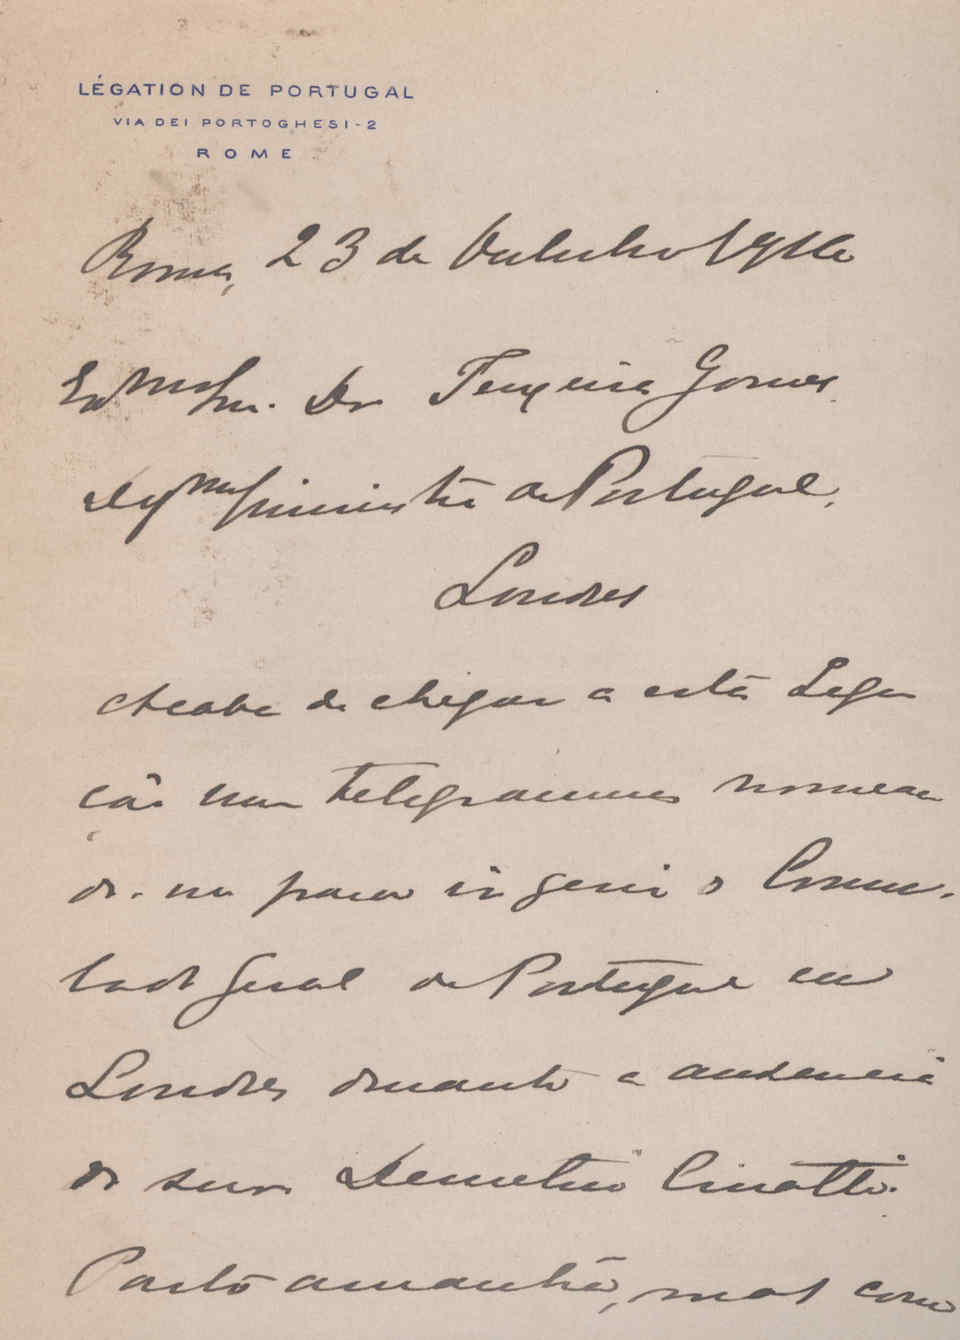 LÉGATION DE PORTUGAL
VIA DEI PORTOGHESI-2
ROME
Roma, 23 de Outubro 1916
Exmo Snr. Dr Teixeira Gomes
Dig.mo Ministro de Portugal.
Londres
Acaba de chegar a esta Lega
ção um telegramma nomean
do-me para ir gerir o Consu-
lado Geral de Portugal em
Londres durante a ausencia
do snr. Demetrio Cinatti.
Parto amanhã, mas com